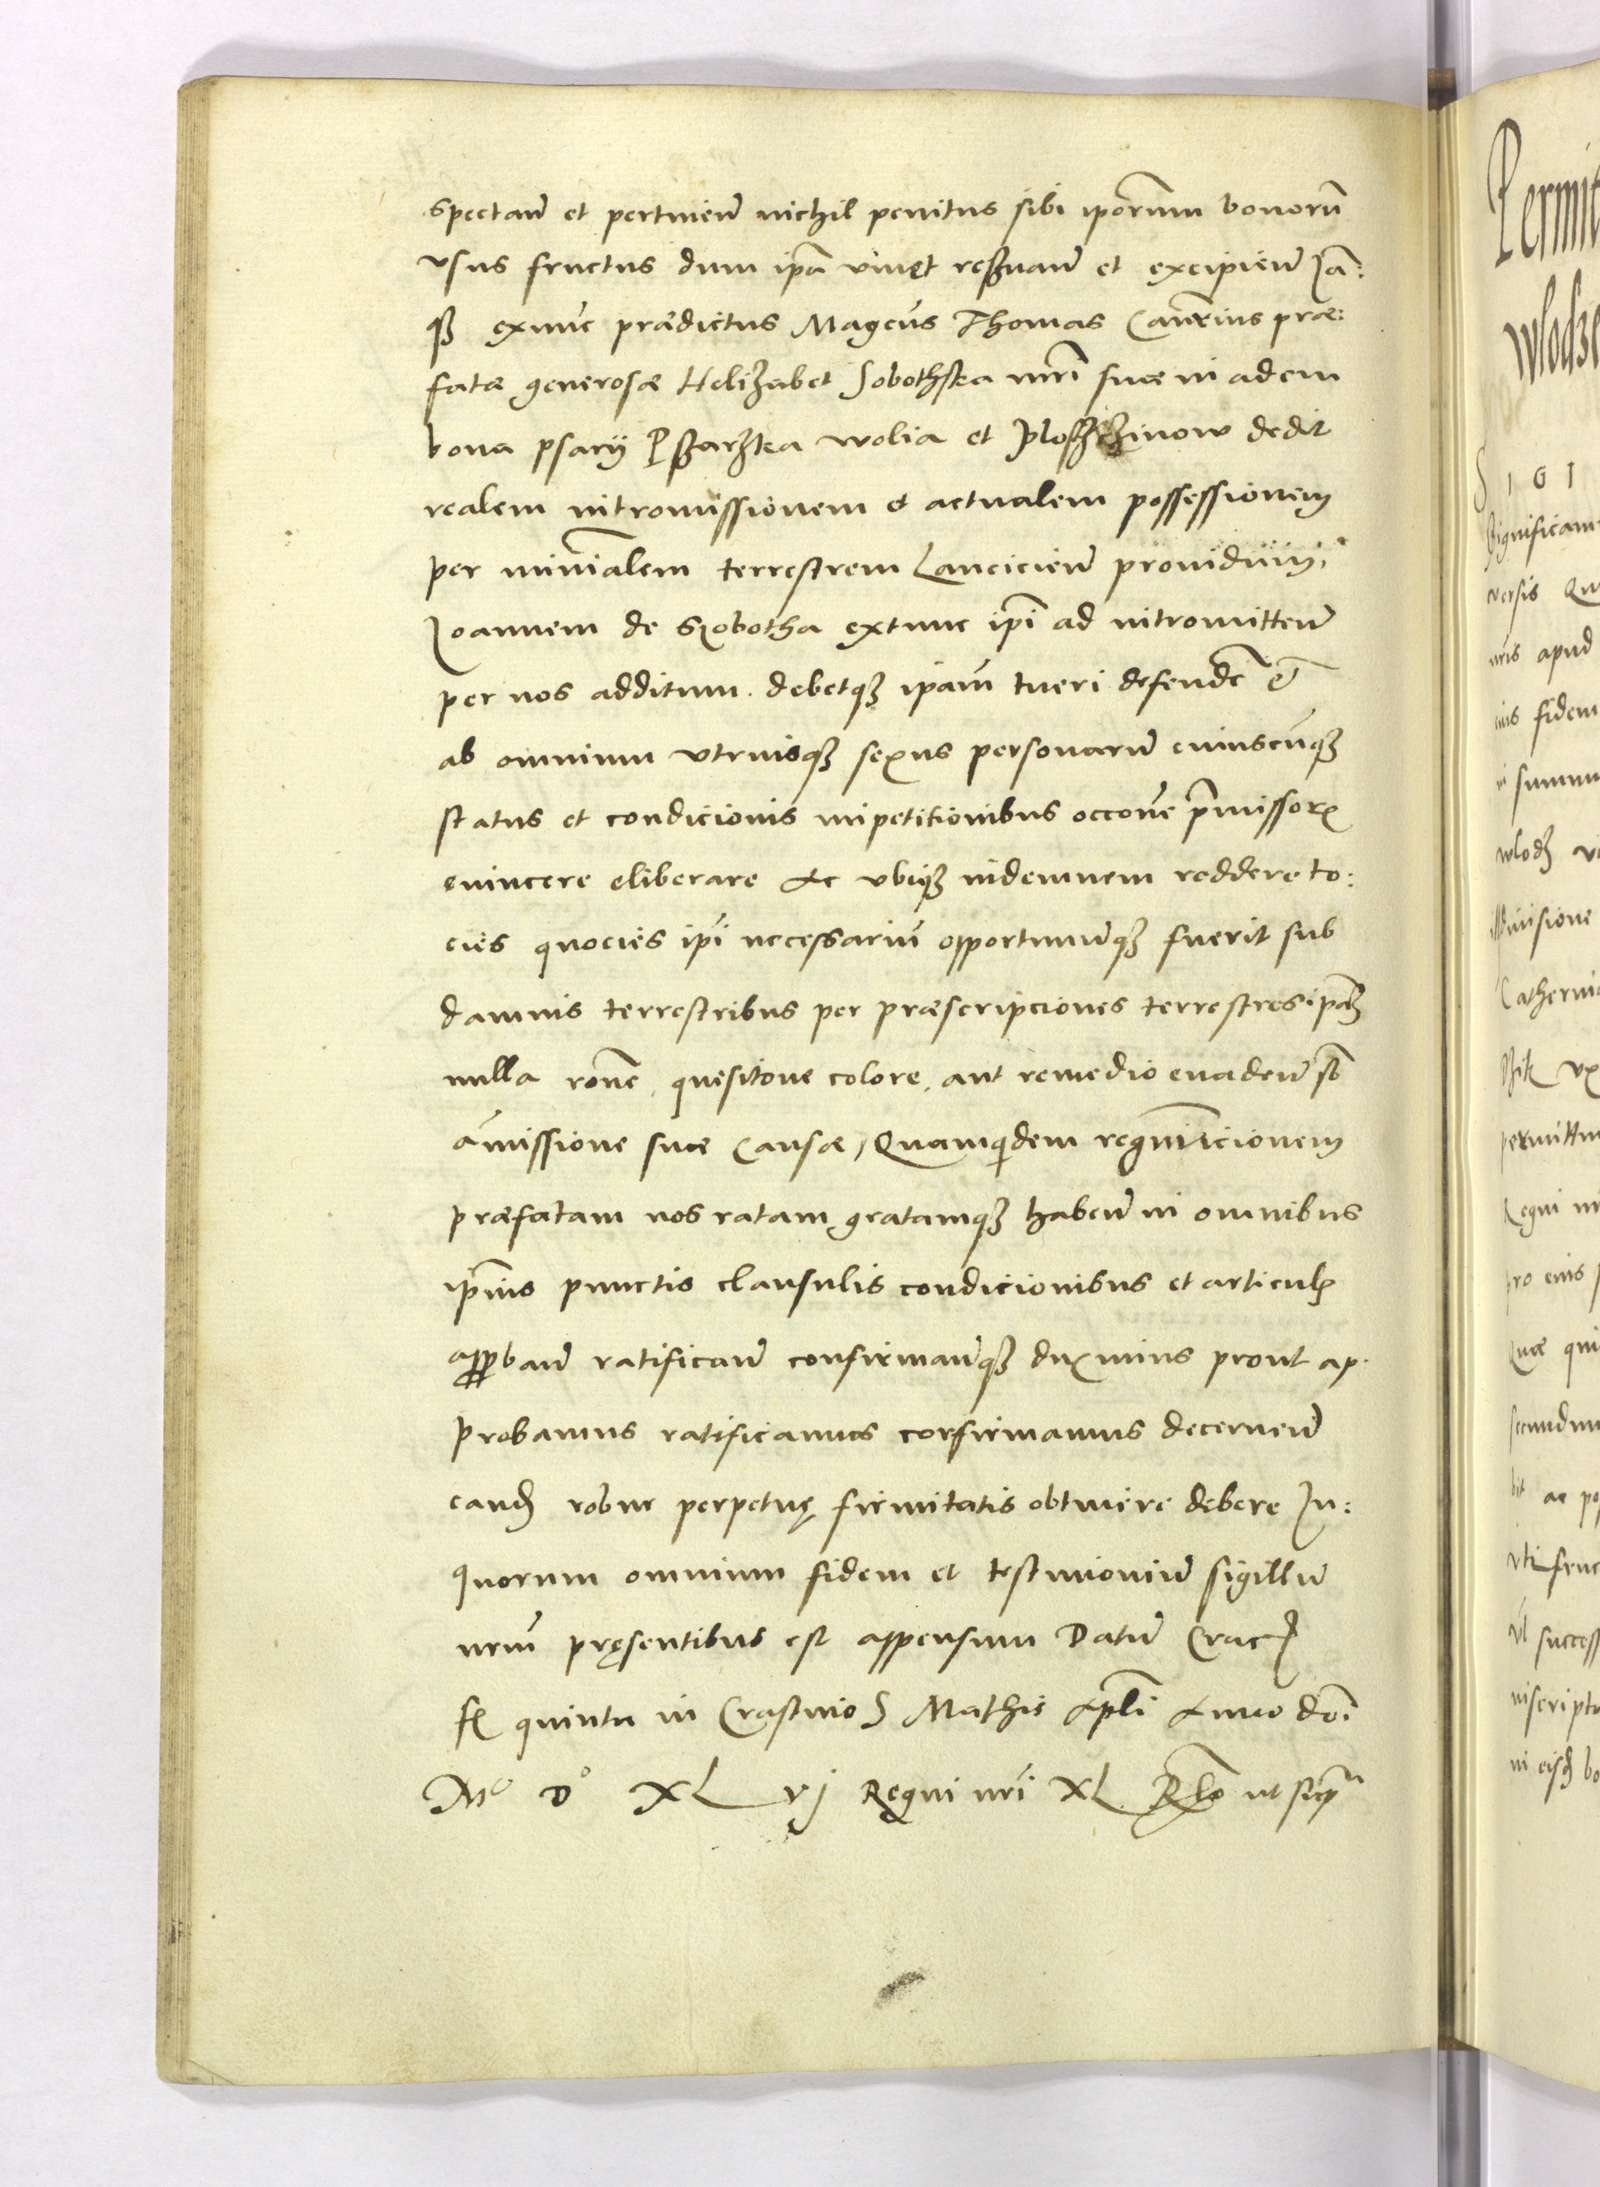 spectan̄ et pertinen̄ nichil penitus sibi ip̄orum bonorū
vsus fructus dum ip̄a viuet reserȝuan̄ et excipien̄ Iā:
qȝ exnūc prædictus Magcūs Thomas Canrīus præ:
fatæ generosæ Helizabet Sobothska mr̄i suæ in adem
bona psary Psarzka wolia et Plosczinow dedit
realem intromissionem et actualem possessionem
per minr̄alem terrestrem Lancicien̄ prouidum
Ioannem de Szobotha extunc ip̄i ad intromitten̄
per nos additum. debetqȝ ip̄am tueri defende ē
ab omnium vtriusqȝ sexus personarū cuiuscūqȝ
status et condicionis impetitionibus occōne p̄missorꝝ
euincere eliberare Ac vbiqȝ indemnem reddere to:
cies quocies ip̄i necessariū opportunūqȝ fuerit sub
damnis terrestribus per præscripciones terrestres ip̄am
nulla rōne, quesitoue colore, aut remedio euaden̄ sb̄
amissione suæ Causæ, Quamquidem regnicionem
præfatam nos ratam gratamqȝ haben̄ in omnibus
ip̄ius punctis clausulis condicionibus et articulꝭ
approban̄ ratifican̄ confirmanqȝ duximus prout ap.
probamus ratificamus confirmamus decernen̄
eandꝫ robur perpetuę firmitatis obtinere debere In:
quorum omnium fidem et testimoniū sigillū
nrūm pręsentibus est appensum Datū Crac
fꝭ quinta in Crastino S Mathie Apl̄i Anno dn̄i
Mº Dº XL vj Regni nrī XL Rl̄o ut supra
Permit
wlodz
S 1 0 1
significam
versis Qu
nris apud
eius fidem
in summ
wlodꝫ vi
uisione
Catherin
permittim
Regni nr
pro eius
Quæ qui
secundum
bit ac po
vti fruc
vl success
inscripto
in eisdꝫ bo